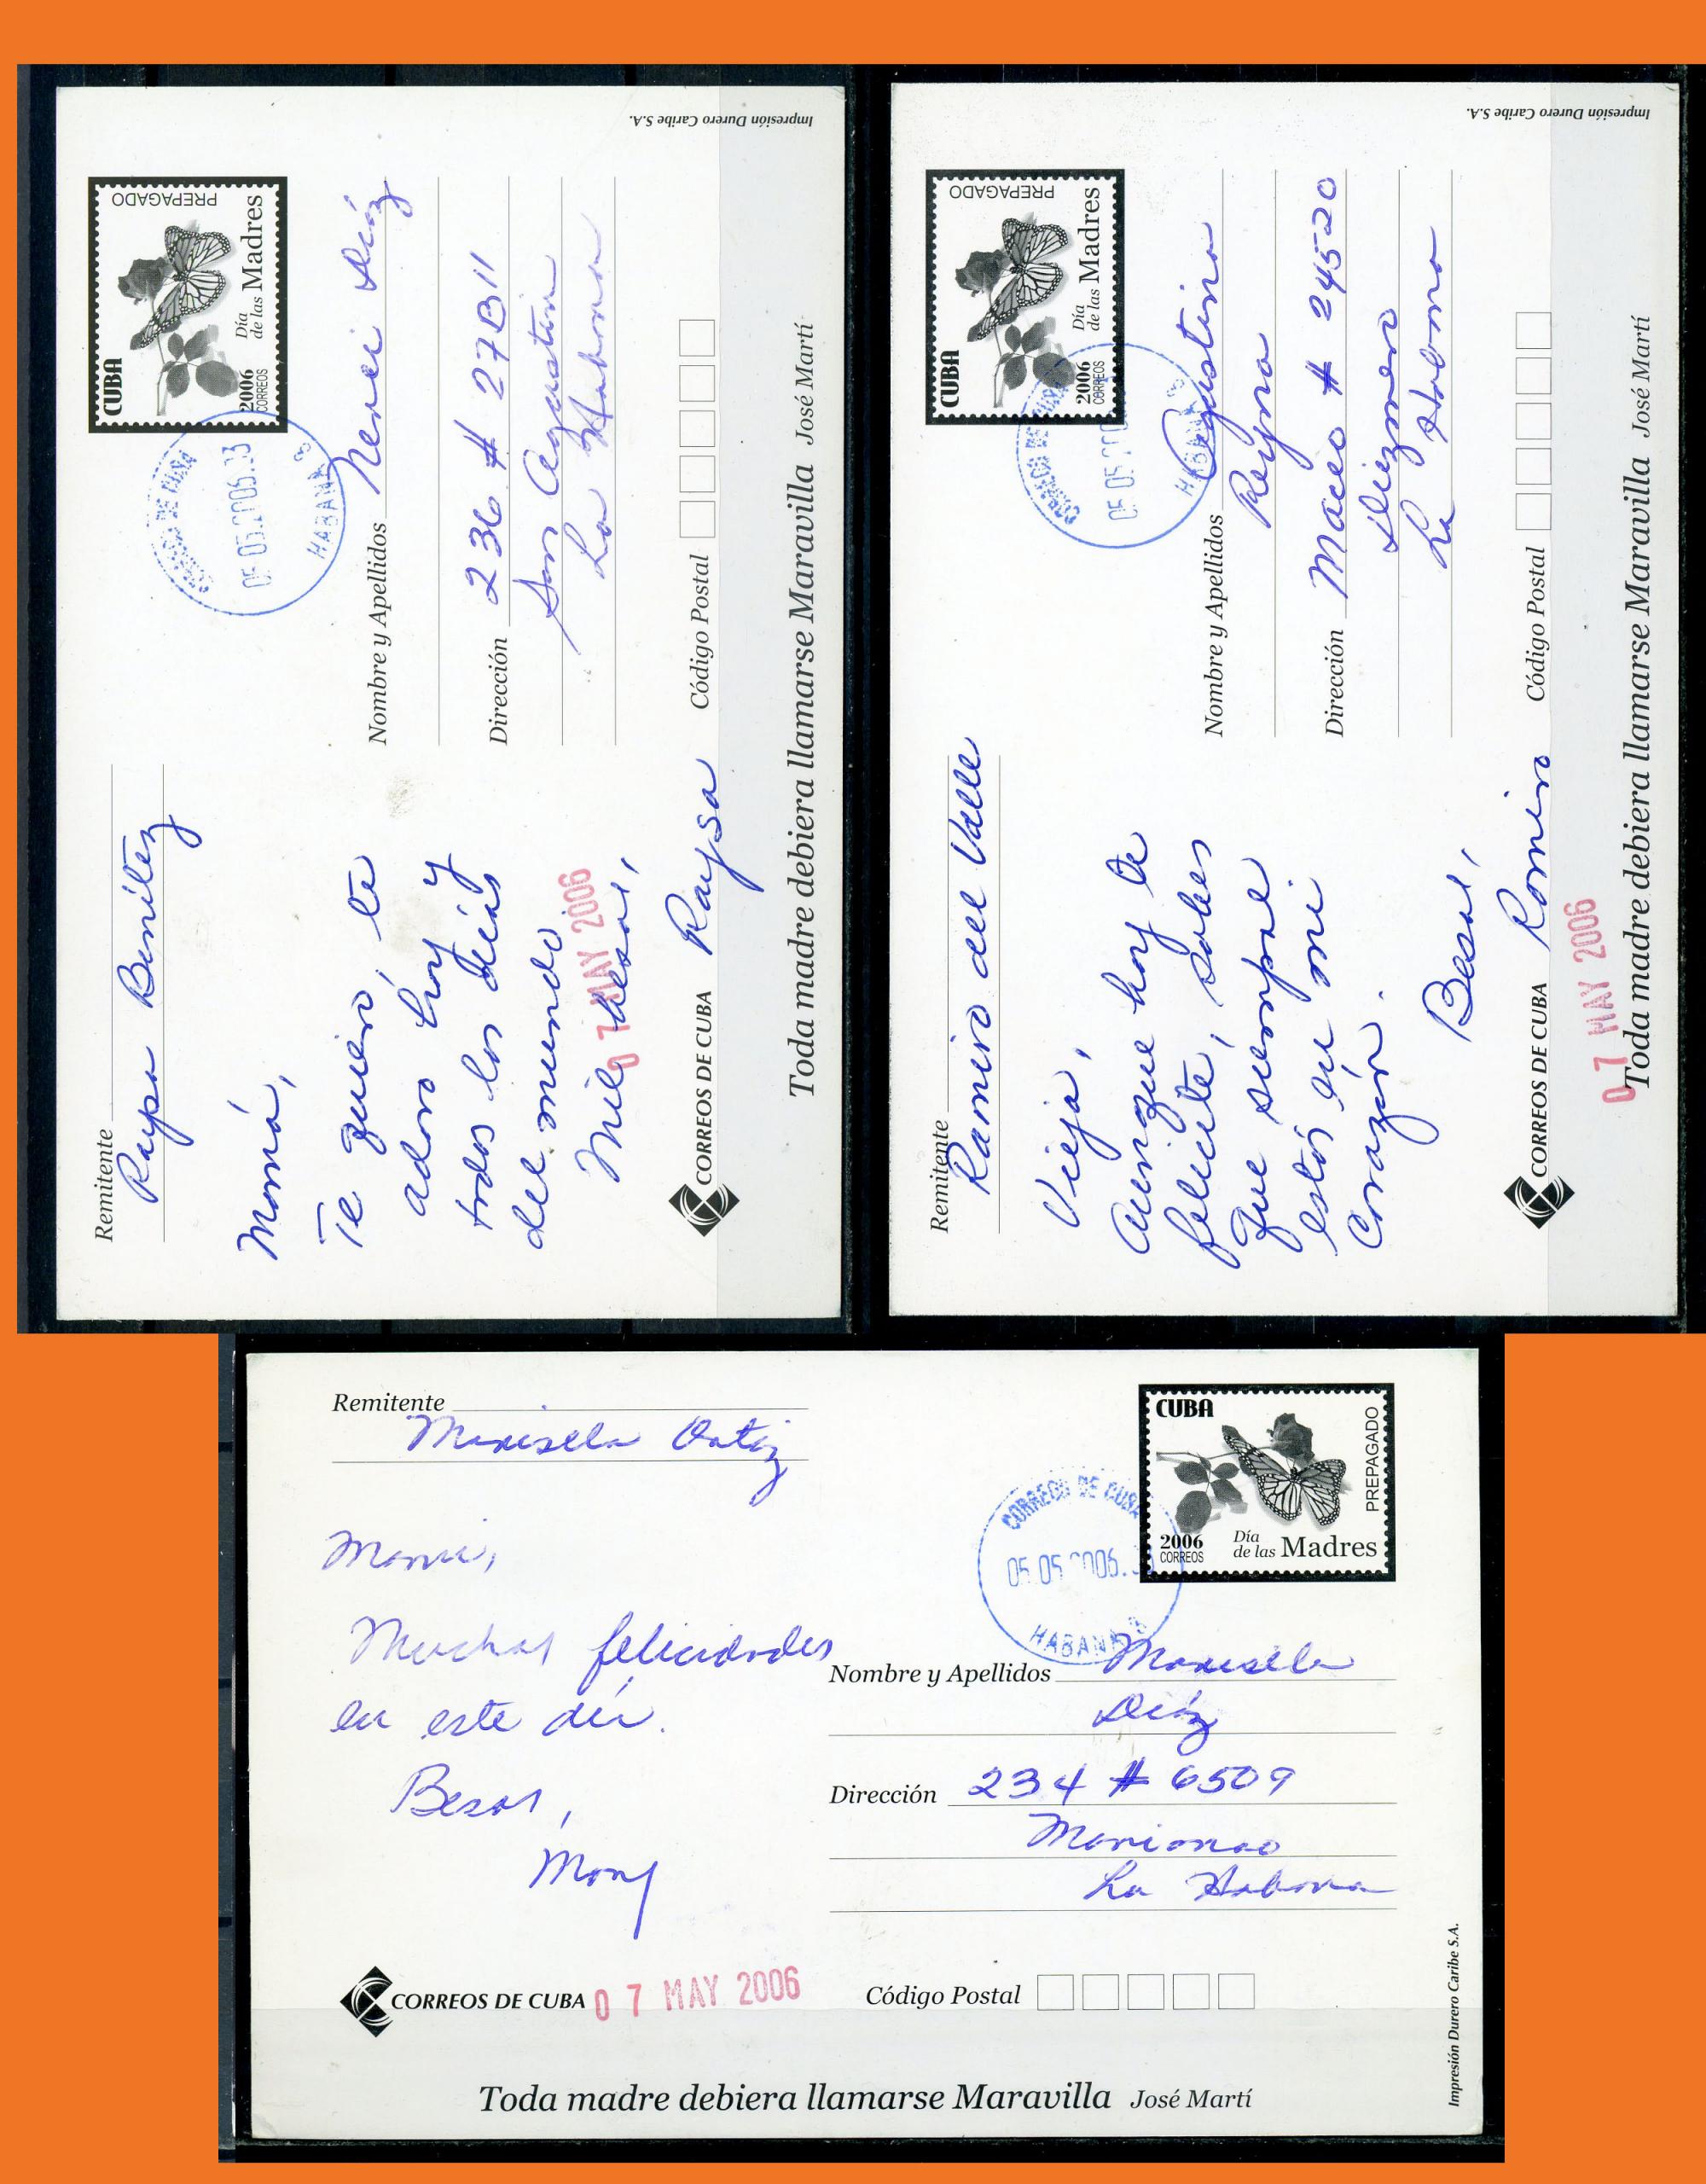 Remitente
Raysa Benítez
Mamá,
Te quiero, te
adoro hoy y
todos los días
del mundo
Mil besos,
Raysa
CORREOS DE CUBA
07 MAY 2006
CUBA
PREPAGADO
2006
CORREOS
Día
de las Madres
CORREOS DE CUBA
05.05.2006.
HABANA 8
Nombre y Apellidos Nerei Díaz
Dirección 236 # 27B11
San Agustin
La Habana
Código Postal
Toda madre debiera llamarse Maravilla José Martí
Impresión Durero Caribe S.A.
Remitente
Ramiro del Valle
Vieja,
Aunque hoy te
felicite, sabes
que siempre
estás en mi
corazón.
Besos,
Ramiro
CORREOS DE CUBA
07 MAY 2006
CUBA
PREPAGADO
2006
CORREOS
Día
de las Madres
CORREOS DE CUBA
05.05.200
HABANA 8
Nombre y Apellidos Agustina
Reyna
Dirección Maceo # 24520
Diezmero
La Habana
Código Postal
Toda madre debiera llamarse Maravilla José Martí
Impresión Durero Caribe S.A.
Remitente
Marisela Ortiz
Mami,
Muchas felicidades
en este día.
Besos,
Mary
CORREOS DE CUBA
07 MAY 2006
CUBA
PREPAGADO
2006
CORREOS
Día
de las Madres
CORREOS DE CUBA
05.05.2006.
HABANA 8
Nombre y Apellidos Marisela
Díaz
Dirección 234 # 6509
Marianao
La Habana
Código Postal
Toda madre debiera llamarse Maravilla José Martí
Impresión Durero Caribe S.A.